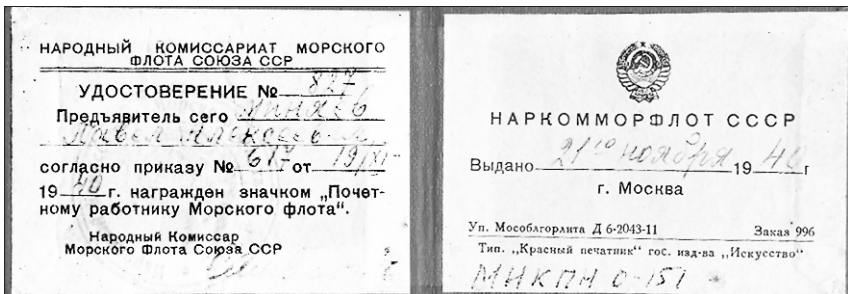 НАРОДНЫЙ КОМИССАРИАТ МОРСКОГО
ФЛОТА СОЮЗА ССР
УДОСТОВЕРЕНИЕ № 827
Предъявитель сего Минаев
Павел
согласно приказу № 617 от 19/XI
1940 г. награжден значком „Почет-
ному работнику Морского флота“.
Народный Комиссар
Морского Флота Союза ССР
НАРКОММОРФЛОТ СССР
Выдано 21го ноября 1940 г
г. Москва
Уп. Мособлгорлита Д 6-2043-11 Заказ 996
Тип. „Красный печатник“ гос. изд-ва „Искусство“
МНКПН О-151